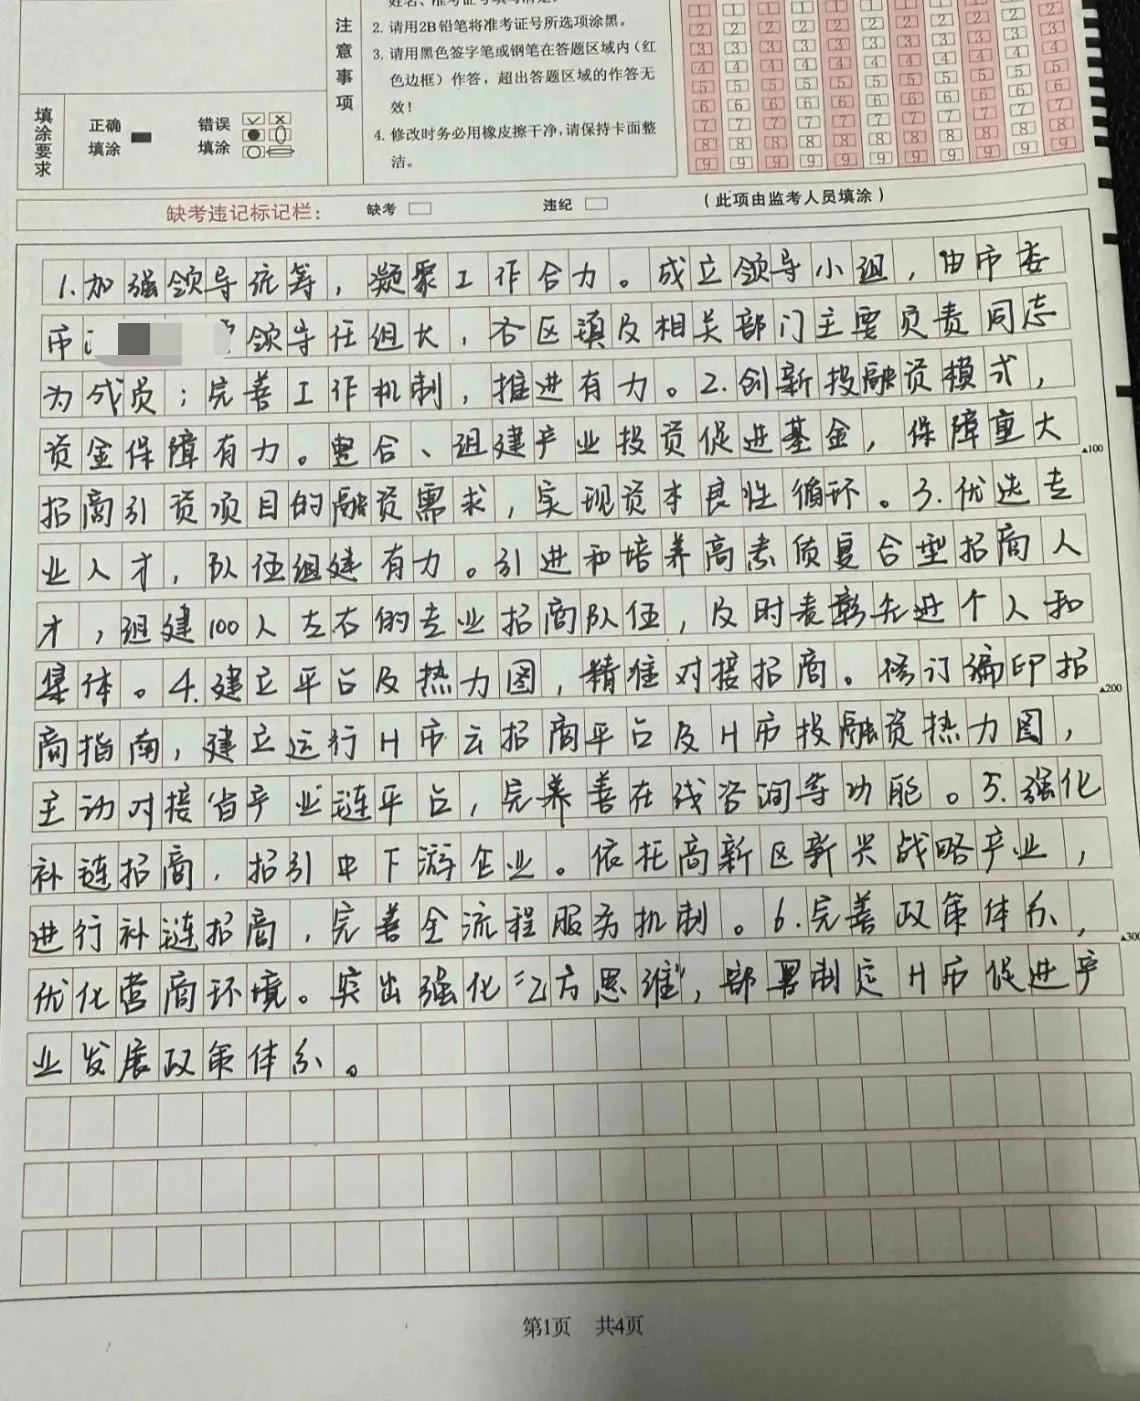 姓名、准考证号填写清楚。
2. 请用2B铅笔将准考证号所选项涂黑。
3. 请用黑色签字笔或钢笔在答题区域内（红
色边框）作答，超出答题区域的作答无
效！
4. 修改时务必用橡皮擦干净，请保持卡面整
洁。
注意事项
填涂要求
正确填涂
错误填涂
[1] [1] [1] [1] [1] [1] [1] [1] [1] [1] [1]
[2] [2] [2] [2] [2] [2] [2] [2] [2] [2] [2]
[3] [3] [3] [3] [3] [3] [3] [3] [3] [3] [3]
[4] [4] [4] [4] [4] [4] [4] [4] [4] [4] [4]
[5] [5] [5] [5] [5] [5] [5] [5] [5] [5] [5]
[6] [6] [6] [6] [6] [6] [6] [6] [6] [6] [6]
[7] [7] [7] [7] [7] [7] [7] [7] [7] [7] [7]
[8] [8] [8] [8] [8] [8] [8] [8] [8] [8] [8]
[9] [9] [9] [9] [9] [9] [9] [9] [9] [9] [9]
缺考违记标记栏： 缺考 违纪 （此项由监考人员填涂）
1.加强领导统筹，凝聚工作合力。成立领导小组，由市委
市 领导任组长，各区镇及相关部门主要负责同志
为成员；完善工作机制，推进有力。2.创新投融资模式，
资金保障有力。整合、组建产业投资促进基金，保障重大
▲100
招商引资项目的融资需求，实现资本良性循环。3.优选专
业人才，队伍组建有力。引进和培养高素质复合型招商人
才，组建100人左右的专业招商队伍，及时表彰先进个人和
集体。4.建立平台及热力图，精准对接招商。修订编印招
▲200
商指南，建立运行H市云招商平台及H市投融资热力图，
主动对接省产业链平台，完善在线咨询等功能。5.强化
补链招商，招引中下游企业。依托高新区新兴战略产业，
进行补链招商，完善全流程服务机制。6.完善政策体系，
▲300
优化营商环境。突出强化“乙方思维”，部署制定H市促进产
业发展政策体系。
第1页 共4页